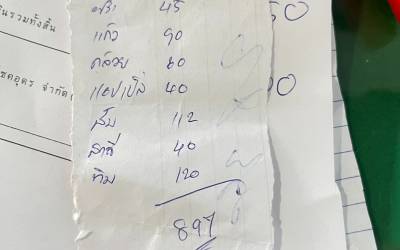 45
แก้ว 90
กล้วย 60
แอปเปิ้ล 40
ส้ม 112
สาลี่ 40
ทิม 120
897
นรวมทั้งสิ้น
ชคอุดร จำกัด
50
00